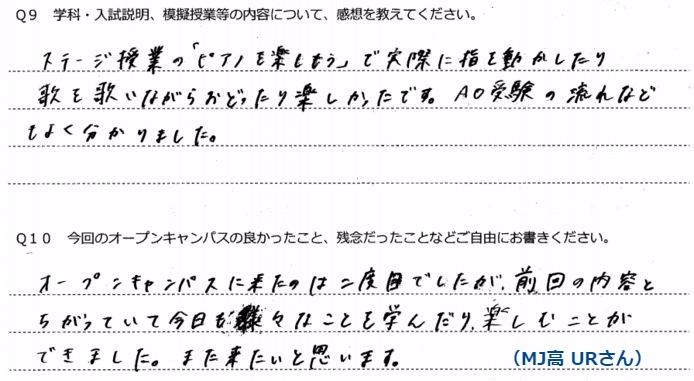 Q9 学科・入試説明、模擬授業等の内容について、感想を教えてください。
ステージ授業の「ピアノを楽しもう」で実際に指を動かしたり
歌を歌いながらおどったり楽しかったです。AO受験の流れなど
もよく分かりました。
Q10 今回のオープンキャンパスの良かったこと、残念だったことなどご自由にお書きください。
オープンキャンパスに来たのは二度目でしたが、前回の内容と
ちがっていて今日も様々なことを学んだり、楽しむことが
できました。また来たいと思います。
(MJ高 URさん)